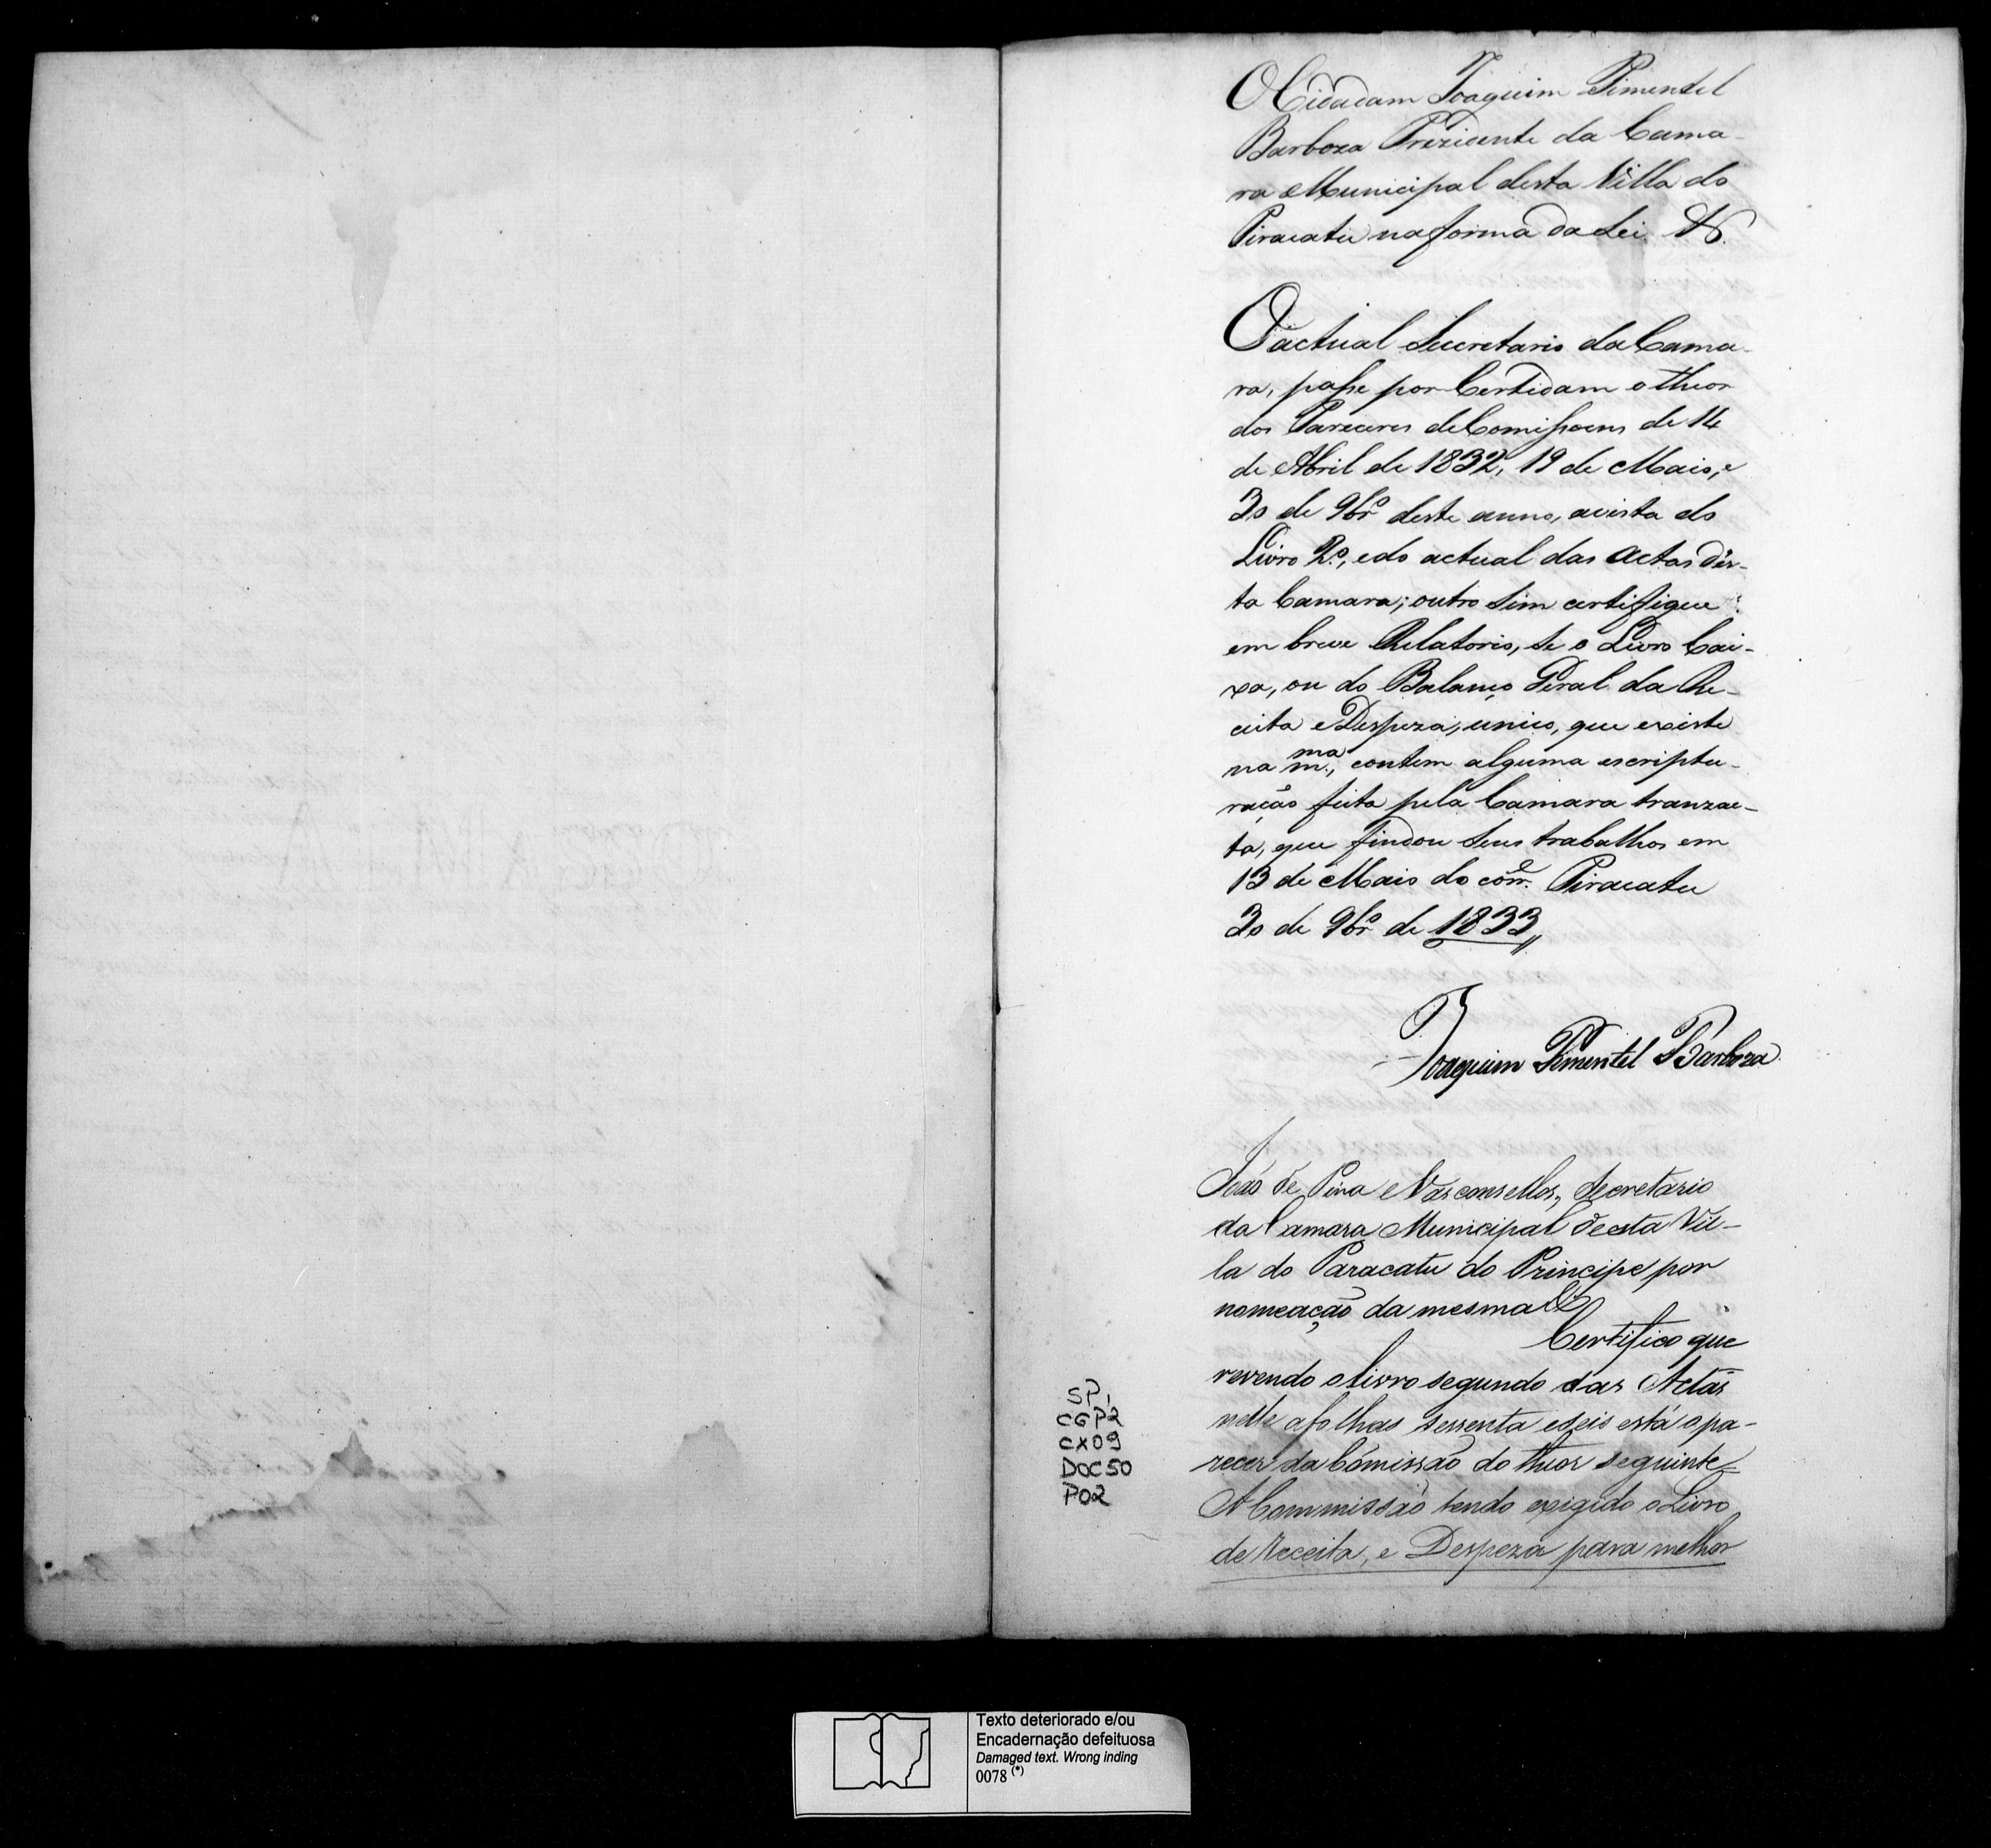 O Cidadam Joaquim Pimentel
Barboza Prezidente da Cama-
ra Municipal desta Villa do
Piracatu na forma da Lei. &.
O actual Secretario da Cama-
ra, passe por Certidam o theor
dos Pareceres de Comissoens de 14
de Abril de 1832, 19 de Maio, e
30 de 9br.º deste anno, avista do
Livro 2.º, e do actual das Actas dés-
ta Camara; outro sim certifique
em breve Relatorio, se o Livro Cai-
xa, ou do Balanço Geral da Re-
ceita e Despeza, unico, que existe
na m.ma, contem alguma escriptu-
ração feita pela Camara tranzac-
ta, que findou seus trabalhos em
13 de Maio do corr.e Piracatu
30 de 9br.º de 1833,,
Joaquim Pimentel Barboza
João de Pina e Vasconsellos, Secretario
da Camara Municipal deesta Vil-
la do Paracatu do Principe por
nomeação da mesma &
Certifico que
revendo o livro segundo das Actas
nelle afolhas sessenta eseis está o pa-
recer da Comissão do theor seguinte=
A Commissão tendo exigido o Livro
de Receita, e Despeza para melhor
SP1
CGP2
CX09
DOC50
P02
Texto deteriorado e/ou
Encadernação defeituosa
Damaged text. Wrong inding
0078 (*)